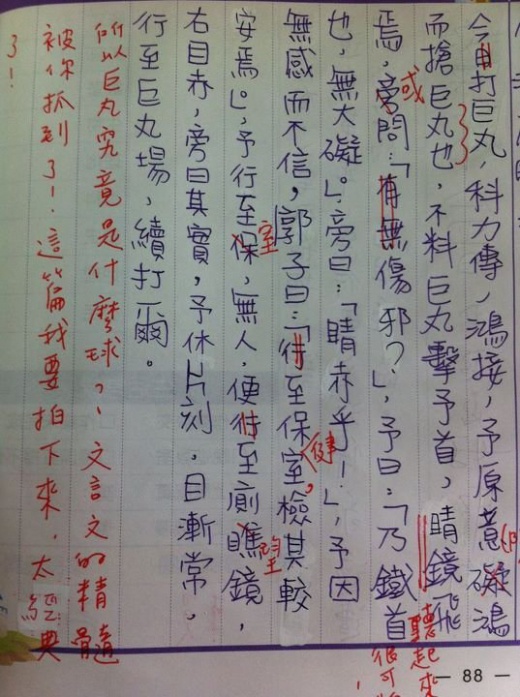 今日打巨丸，科力傳，鴻接，予原意礙鴻
而搶巨丸也，不料巨丸擊予首，睛鏡飛
焉，旁問：「有無傷邪？」，予曰：「乃鐵首
或
也，無大礙。」，旁曰：「睛赤乎！」，予因
無感而不信，郭子曰：「待至保室，檢其較
健
安焉。」，予行至保，無人，便待至廁瞧鏡，
室
望
右目赤，旁曰其實，予休片刻，目漸常，
行至巨丸場，續打爾。
所以巨丸究竟是什麼球？！文言文的精髓
被你抓到了！這篇我要拍下來，太經典
了！
聽起來
很可
88